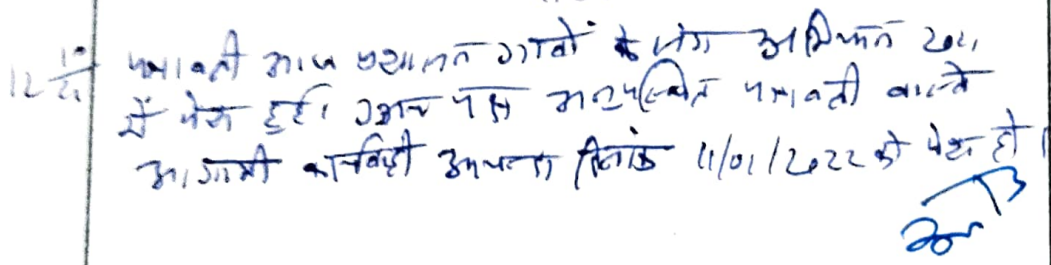 पत्रावली आज प्रशासन गावों के संग अभियान 2021
में पेश हुई। उभय पक्ष अनुपस्थित पत्रावली वास्ते
आगामी कार्यवाही दिनांक 11/01/2022 को पेश हो।